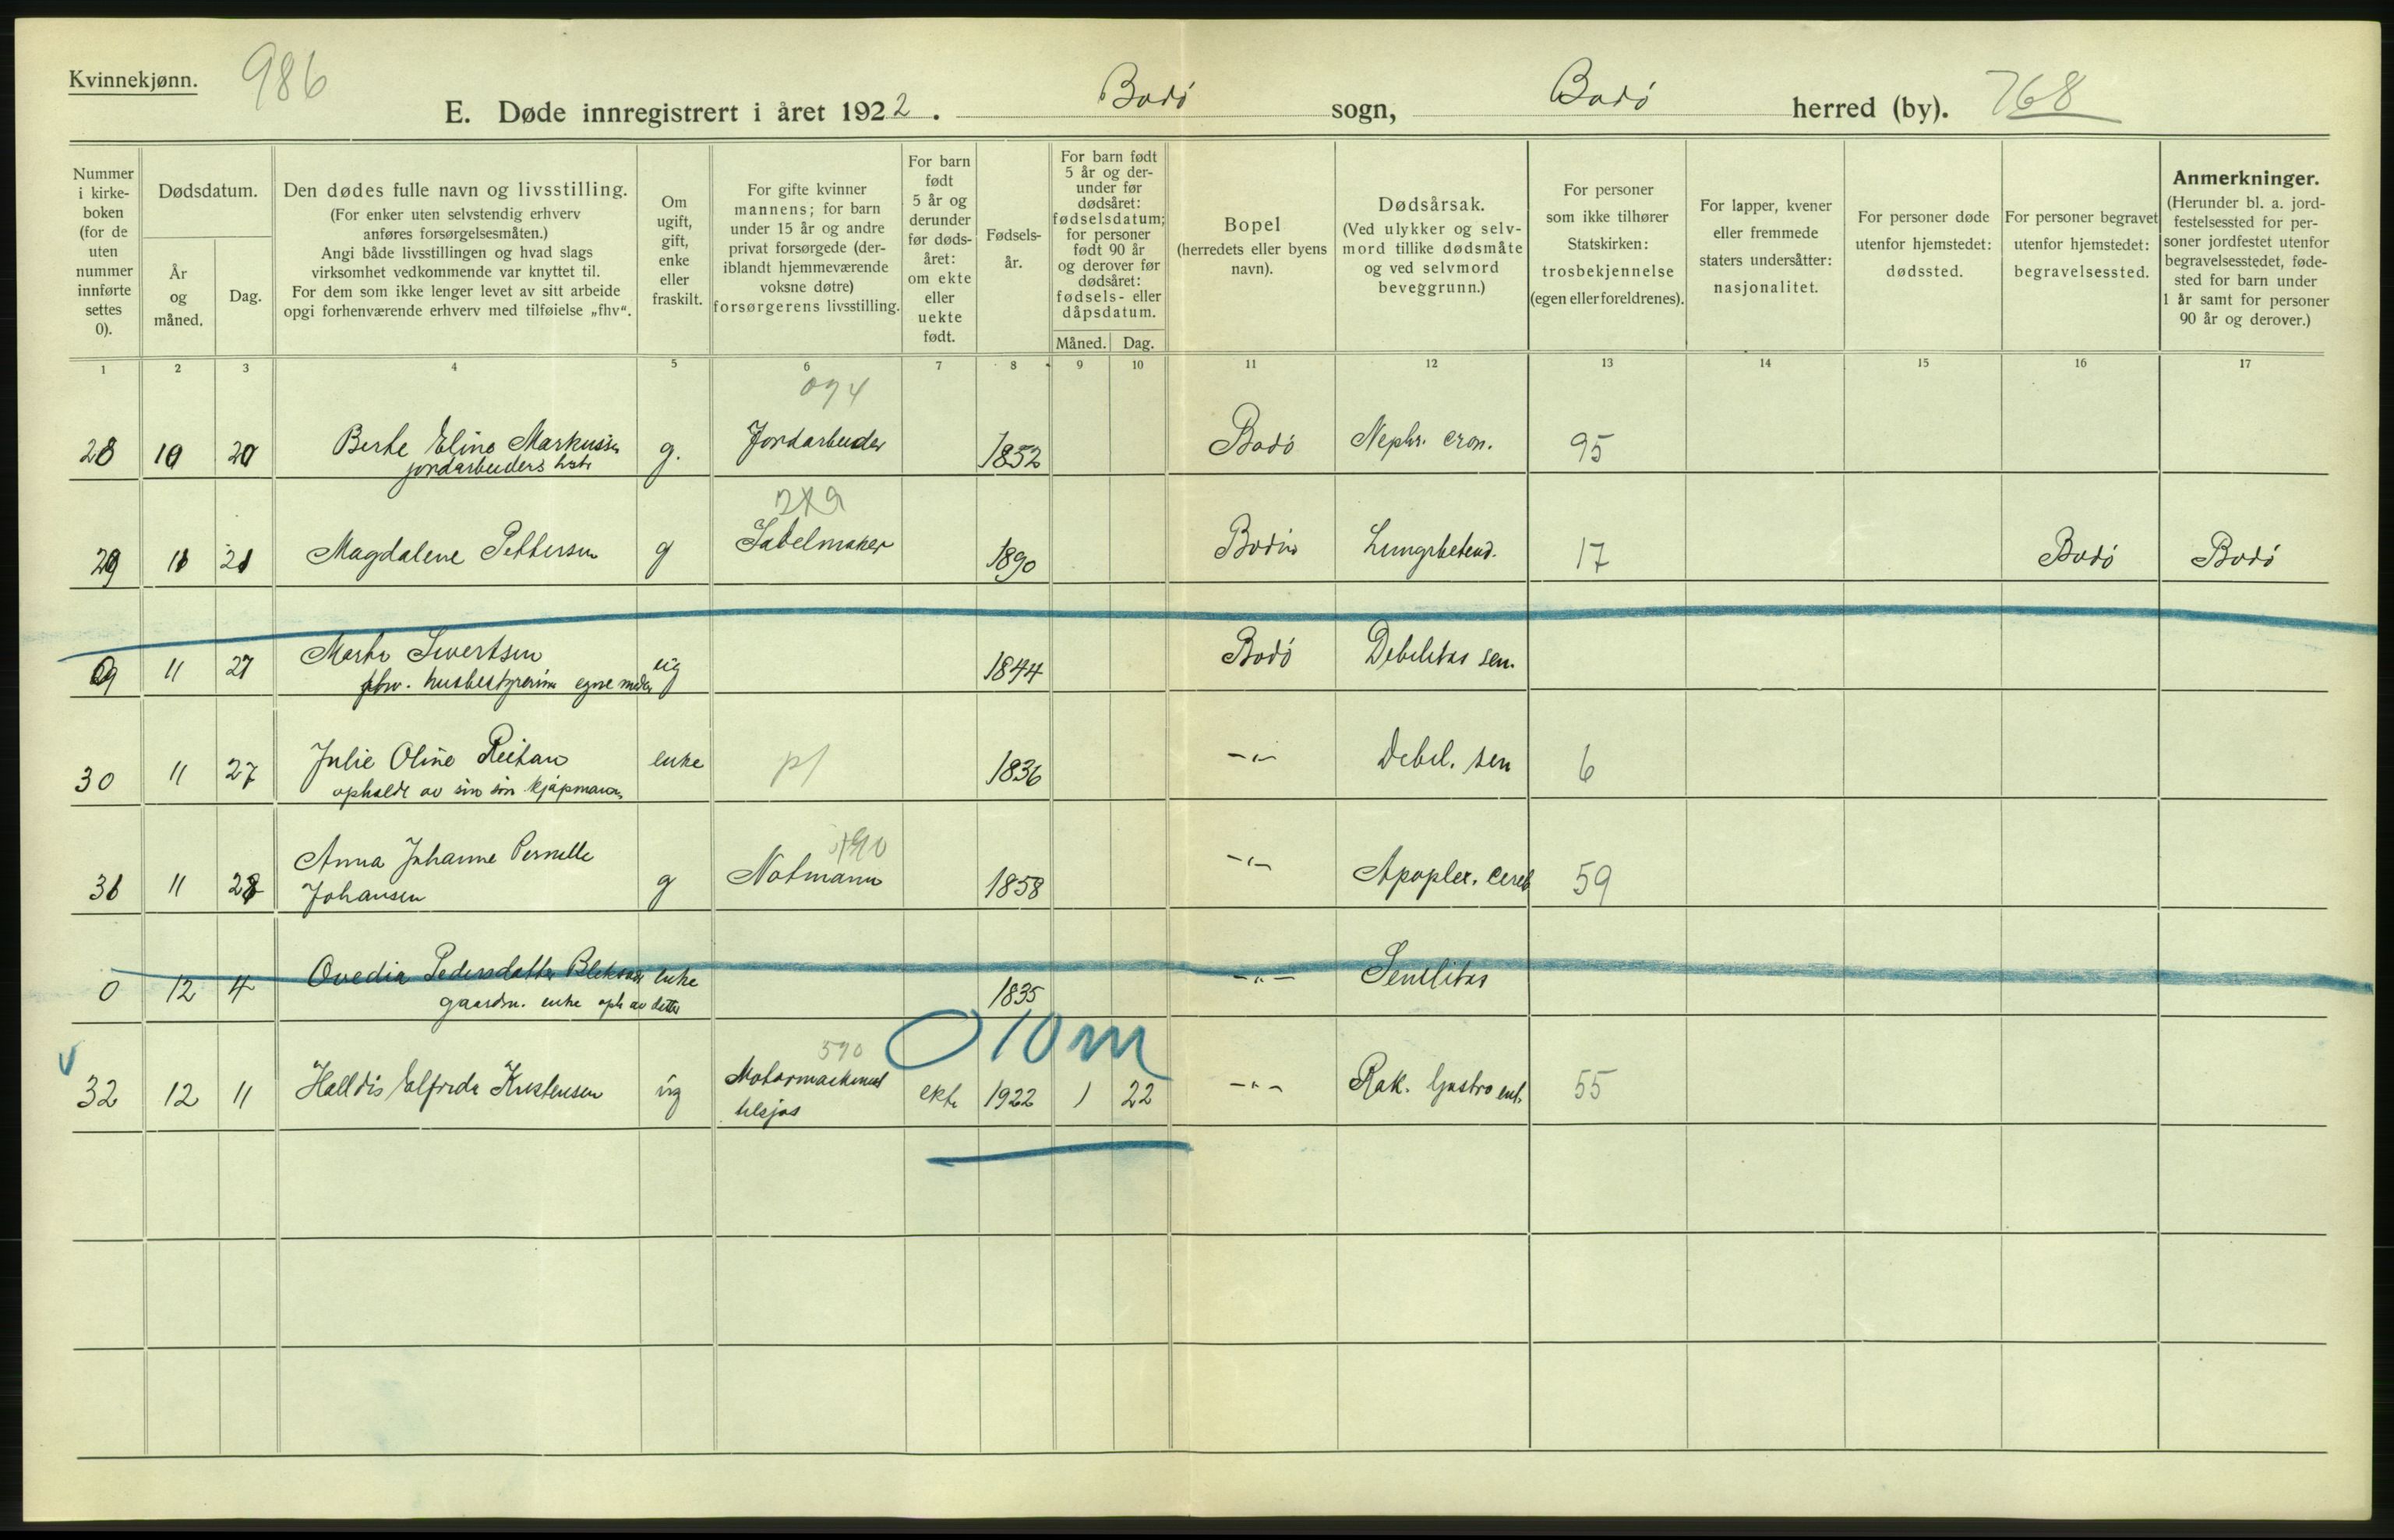 Kvinnekjønn.
986
E. Døde innregistrert i året 1922. Bodø sogn, Bodø herred (by). 768
Nummer i kirkeboken (for de uten nummer innførte settes 0).
Dødsdatum.
År og måned.
Dag.
Den dødes fulle navn og livsstilling.
(For enker uten selvstendig erhverv anføres forsørgelsesmåten.)
Angi både livsstillingen og hvad slags virksomhet vedkommende var knyttet til.
For dem som ikke lenger levet av sitt arbeide opgi forhenværende erhverv med tilføielse „fhv“.
Om ugift, gift, enke eller fraskilt.
For gifte kvinner mannens; for barn under 15 år og andre privat forsørgede (deriblandt hjemmeværende voksne døtre) forsørgerens livsstilling.
For barn født 5 år og derunder før dødsåret: om ekte eller uekte født.
Fødselsår.
For barn født 5 år og derunder før dødsåret: fødselsdatum; for personer født 90 år og derover før dødsåret: fødsels- eller dåpsdatum.
Måned. Dag.
Bopel (herredets eller byens navn).
Dødsårsak.
(Ved ulykker og selvmord tillike dødsmåte og ved selvmord beveggrunn.)
For personer som ikke tilhører Statskirken: trosbekjennelse (egen eller foreldrenes).
For lapper, kvener eller fremmede staters undersåtter: nasjonalitet.
For personer døde utenfor hjemstedet: dødssted.
For personer begravet utenfor hjemstedet: begravelsessted.
Anmerkninger.
(Herunder bl. a. jordfestelsessted for personer jordfestet utenfor begravelsesstedet, fødested for barn under 1 år samt for personer 90 år og derover.)
1 2 3 4 5 6 7 8 9 10 11 12 13 14 15 16 17
094
28 10 20 Berte Eline Markussen g. Jordarbeider 1852 Bodø Nephr. cron. 95
jordarbeiders
29 21 Magdalene Pettersen g 1890 Bodin 17 Bodø Bodø
11 27 Marte Sivertsen ug 1844 Bodø Debilitas sen.
fhv. husbestyrerinne egne midler
30 11 27 Julie Oline Reitan enke pf 1836 -"- Debil. sen 6
opholdt av sin søn kjøpmann
Anna Johanne Pernille
31 11 28 Johansen g Notmann 1858 -"- Apoplex. cereb 59
0 12 4 Ovedia Pedersdatter enke 1835 -"- Senilitas
gaardm. enke oph av datter
0 10 m
590
32 12 11 Halldis Elfrida Kristensen ug Motormaskinist ekte 1922 1 22 -"- Rak. Gastro ent. 55
tilsjøs